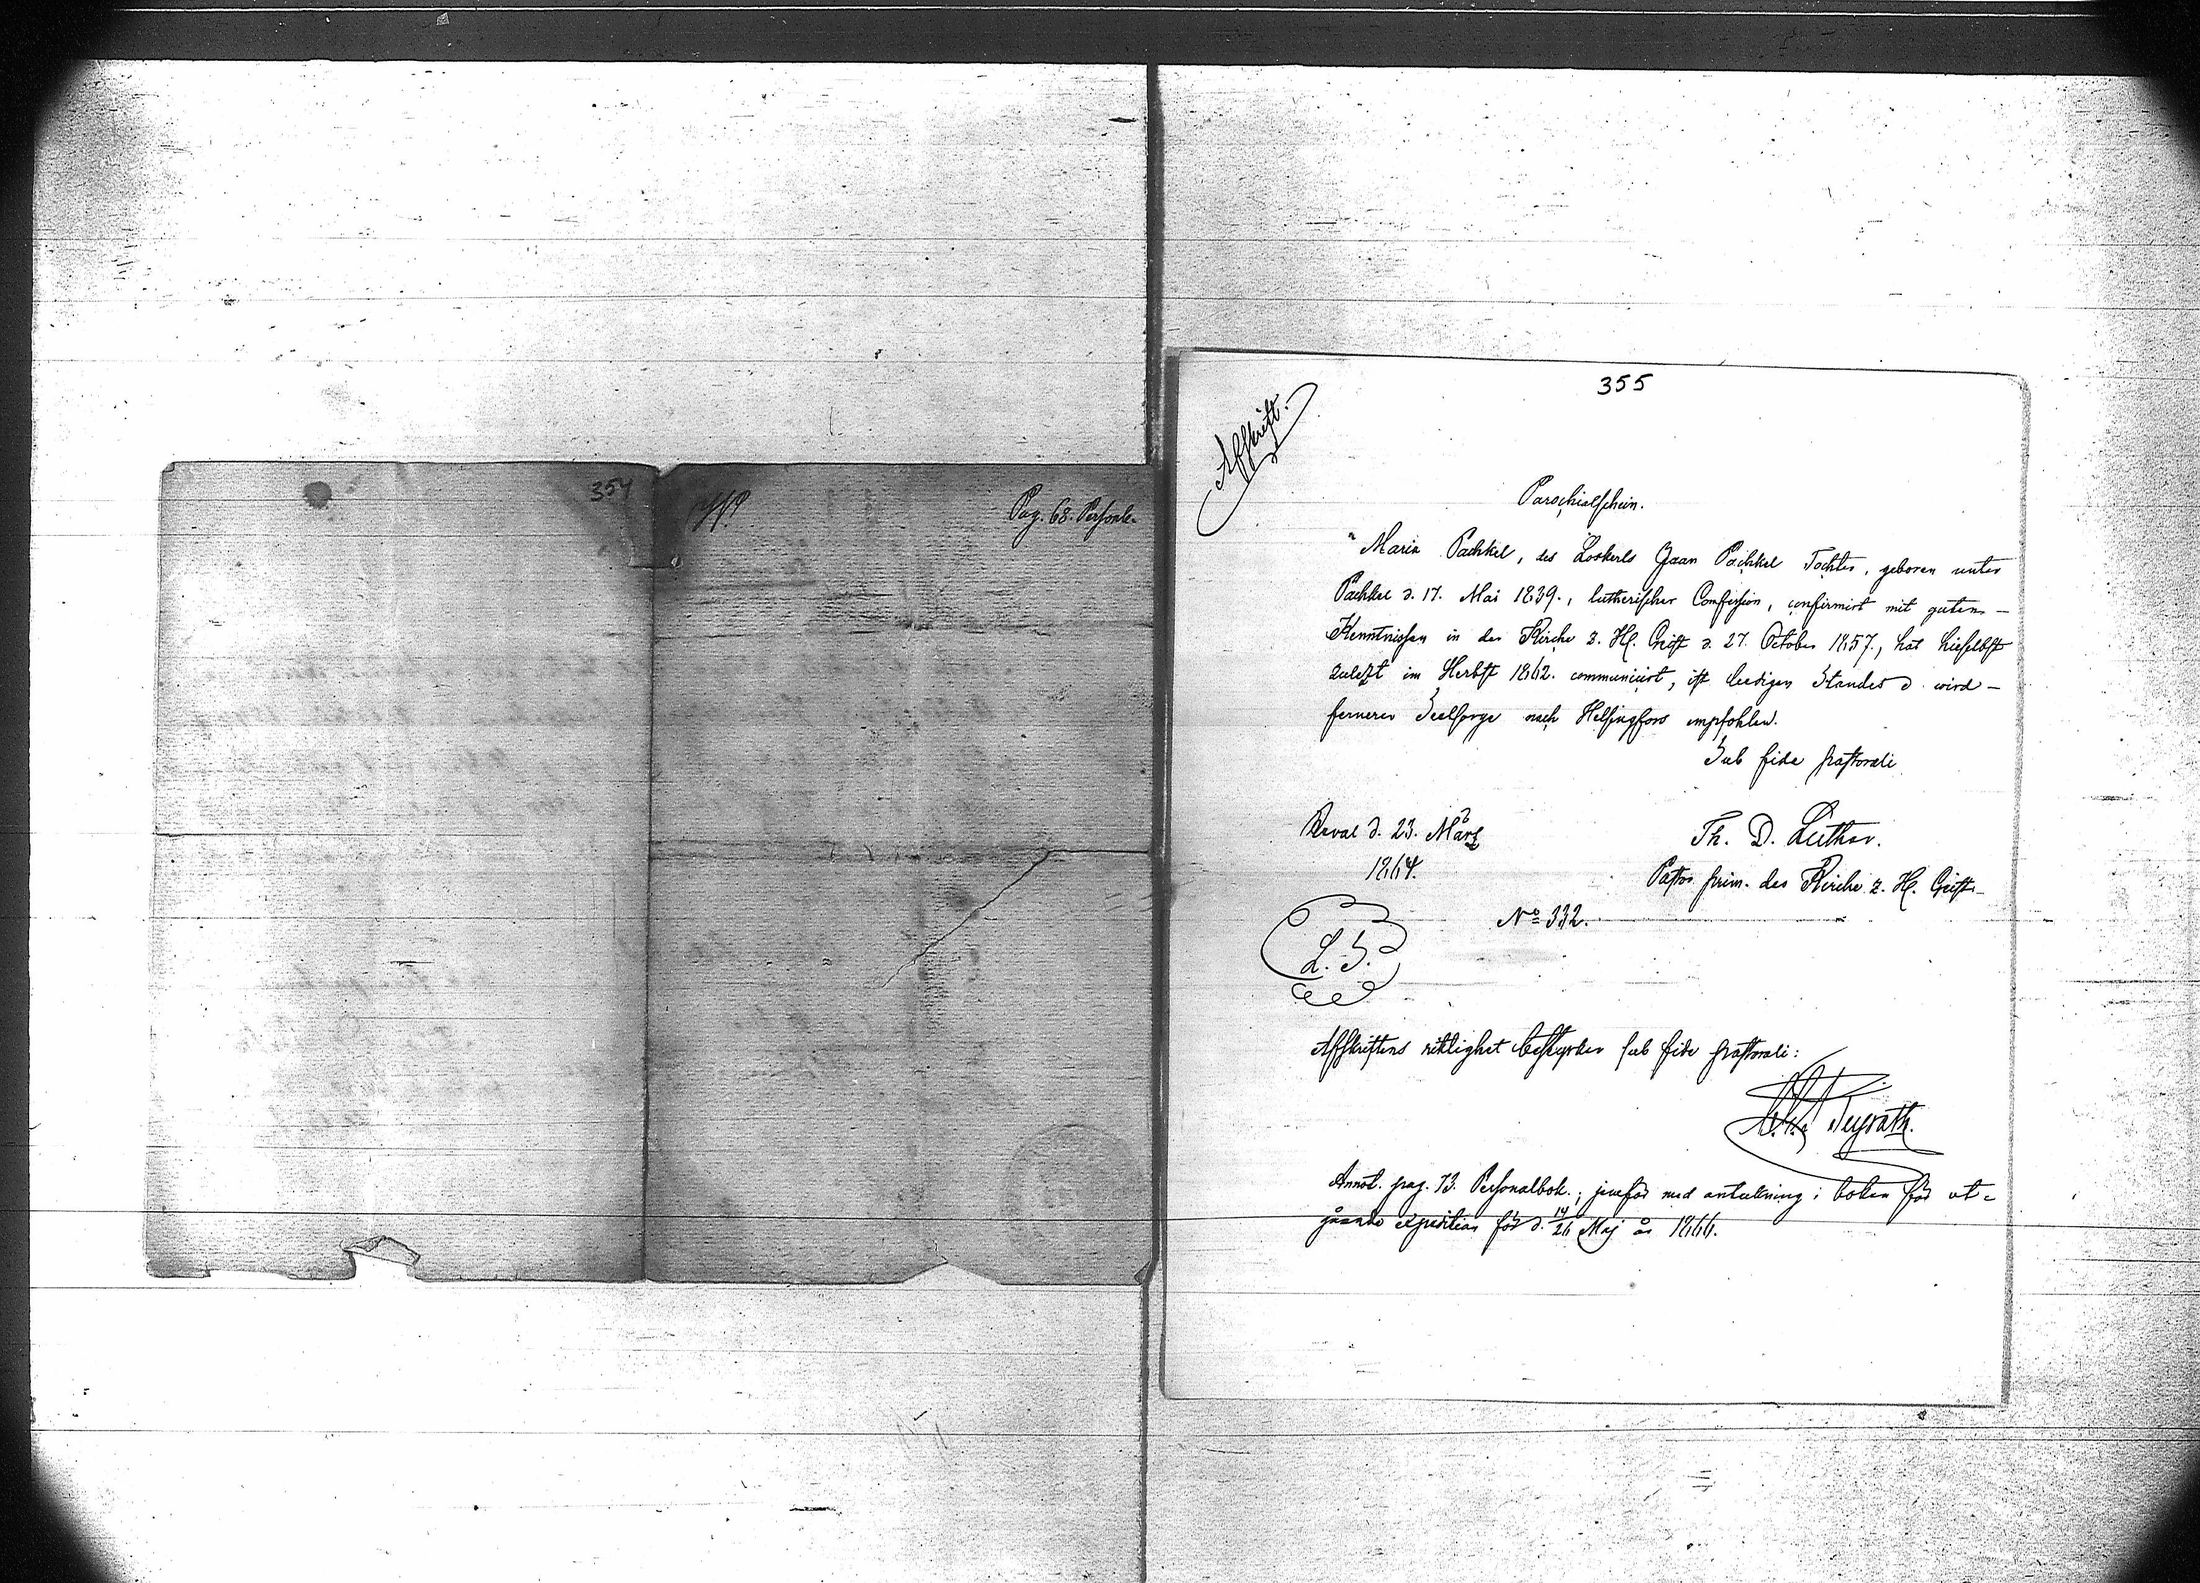 354
Pag. 68. Personb.
355
Afskrift.
Parochialschein.
"Maria Pachkel, des Lostreib Jaan Pachkel Tochter, geboren unter
Pachkel d. 17. Mai 1839., lutherischer Confession, confirmirt mit guten
Kenntnissen in der Kirche z. Hl. Geist d. 27. October 1857., hat hieselbst
zuletzt im Herbst 1862. communicirt, ist ledigen Standes & wird
fernerer Seelsorge nach Helsingfors empfohlen.
Sub fide pastorali
Reval d. 23. März
1864.
Th. D. Luther.
Pastor prim. der Kirche z. Hl. Geist
No 332.
L. S.
Afskriftens riktighet bestyrker sub fide pastorali:
Teyrath.
Annot. pag. 73. Personalbok.; jemför med anteckning i boken för ut-
gående expedition för d. 14/26 Maj år 1866.